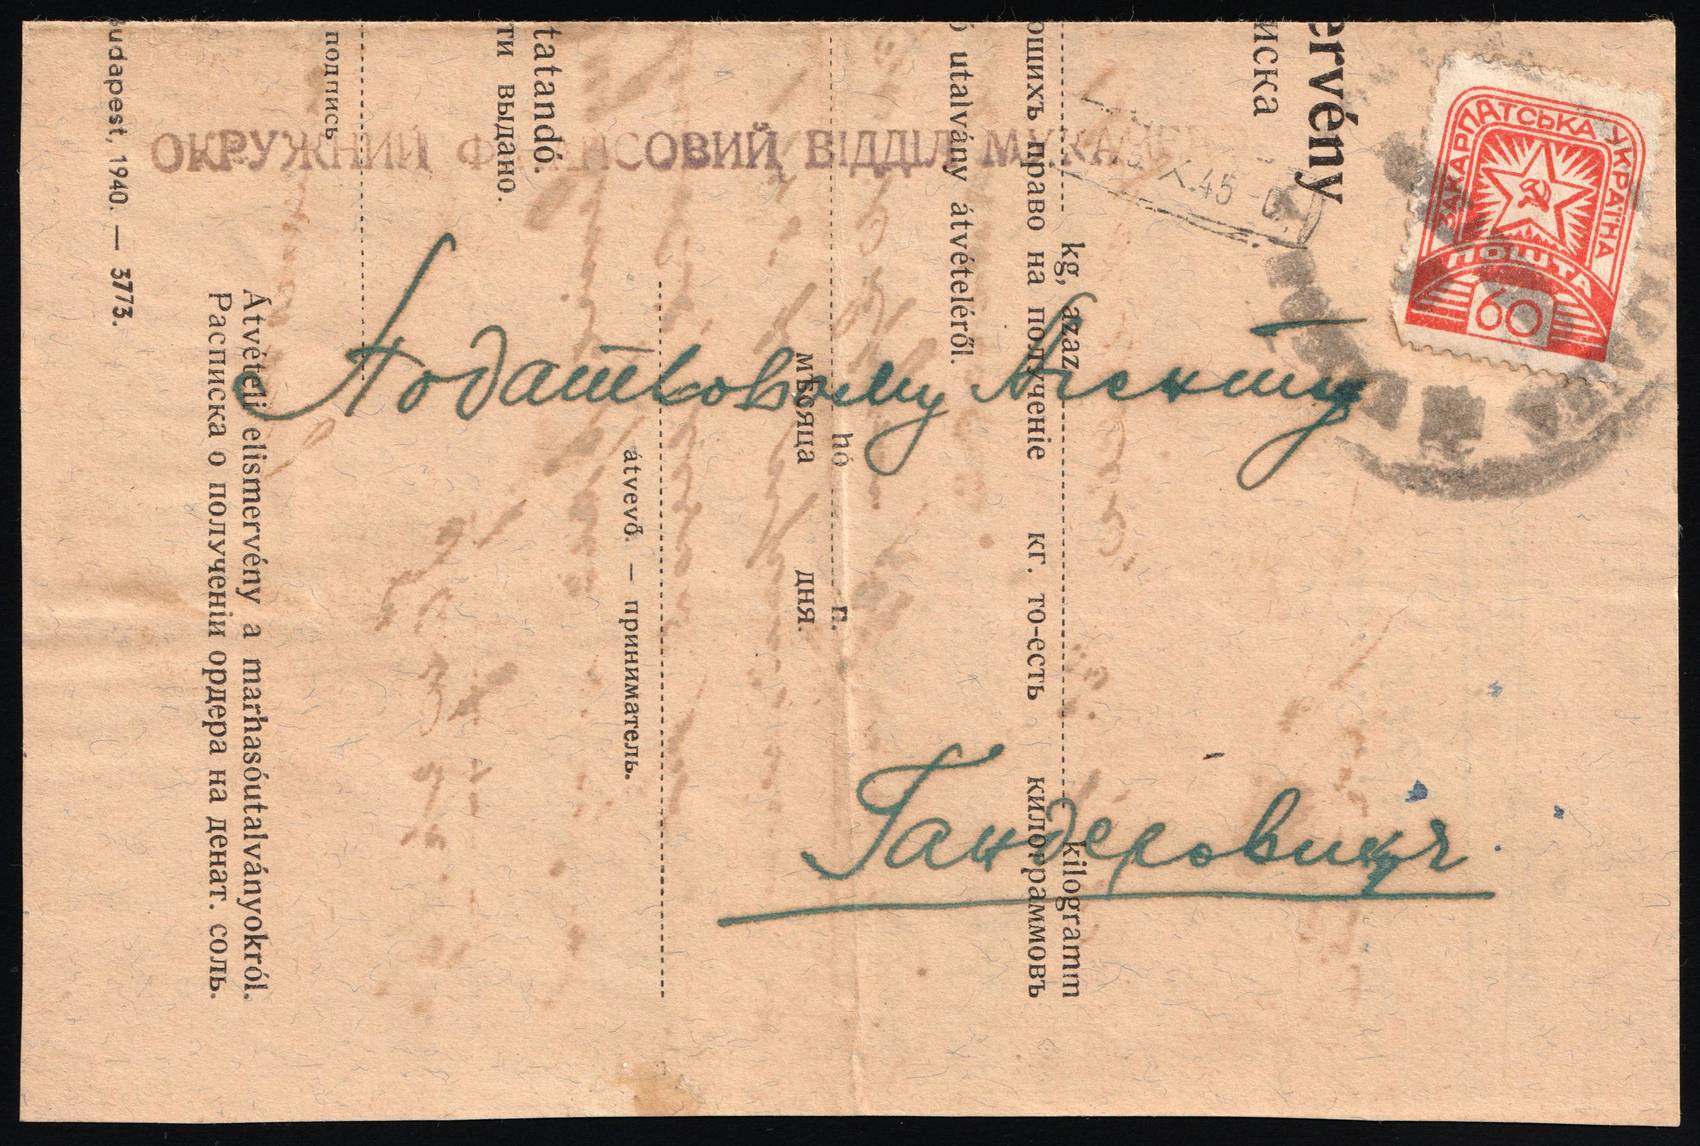 ОКРУЖНИЙ ФІНАНСОВИЙ ВІДДІЛ МУКАЧЕ
ЗАКАРПАТСЬКА УКРАЇНА
ПОШТА
60
X.45
Податковому Агенту
Гандеровичч
ervény
иска
kg, azaz kilogramm
ошихъ право на полученіе кг. то-есть килограммовъ
ó utalvány átvételéről.
hó n.
мѣсяца дня.
átvevő. — приниматель.
tatandó.
ти выдано.
подпись
Átvételi elismervény a marhasóutalványokról.
Расписка о полученіи ордера на денат. соль.
Budapest, 1940. — 3773.